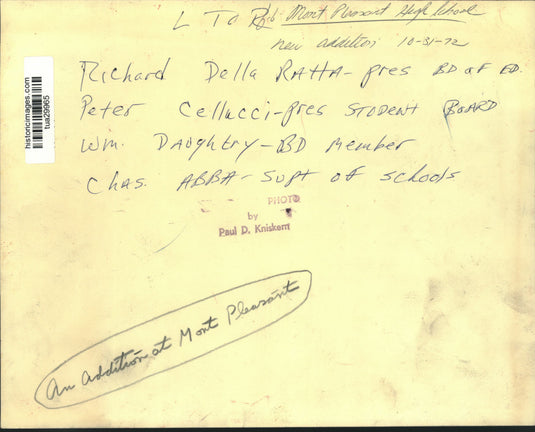 L TO R Mont Pleasant High School
new addition 10-31-72
Richard Della RATTA - pres BD of ED.
Peter Cellucci - pres STUDENT BOARD
Wm. DAughtry - BD Member
Chas. ABBA - Supt of schools
PHOTO
by
Paul D. Kniskern
An addition at Mont Pleasant
historicimages.com
tua29965